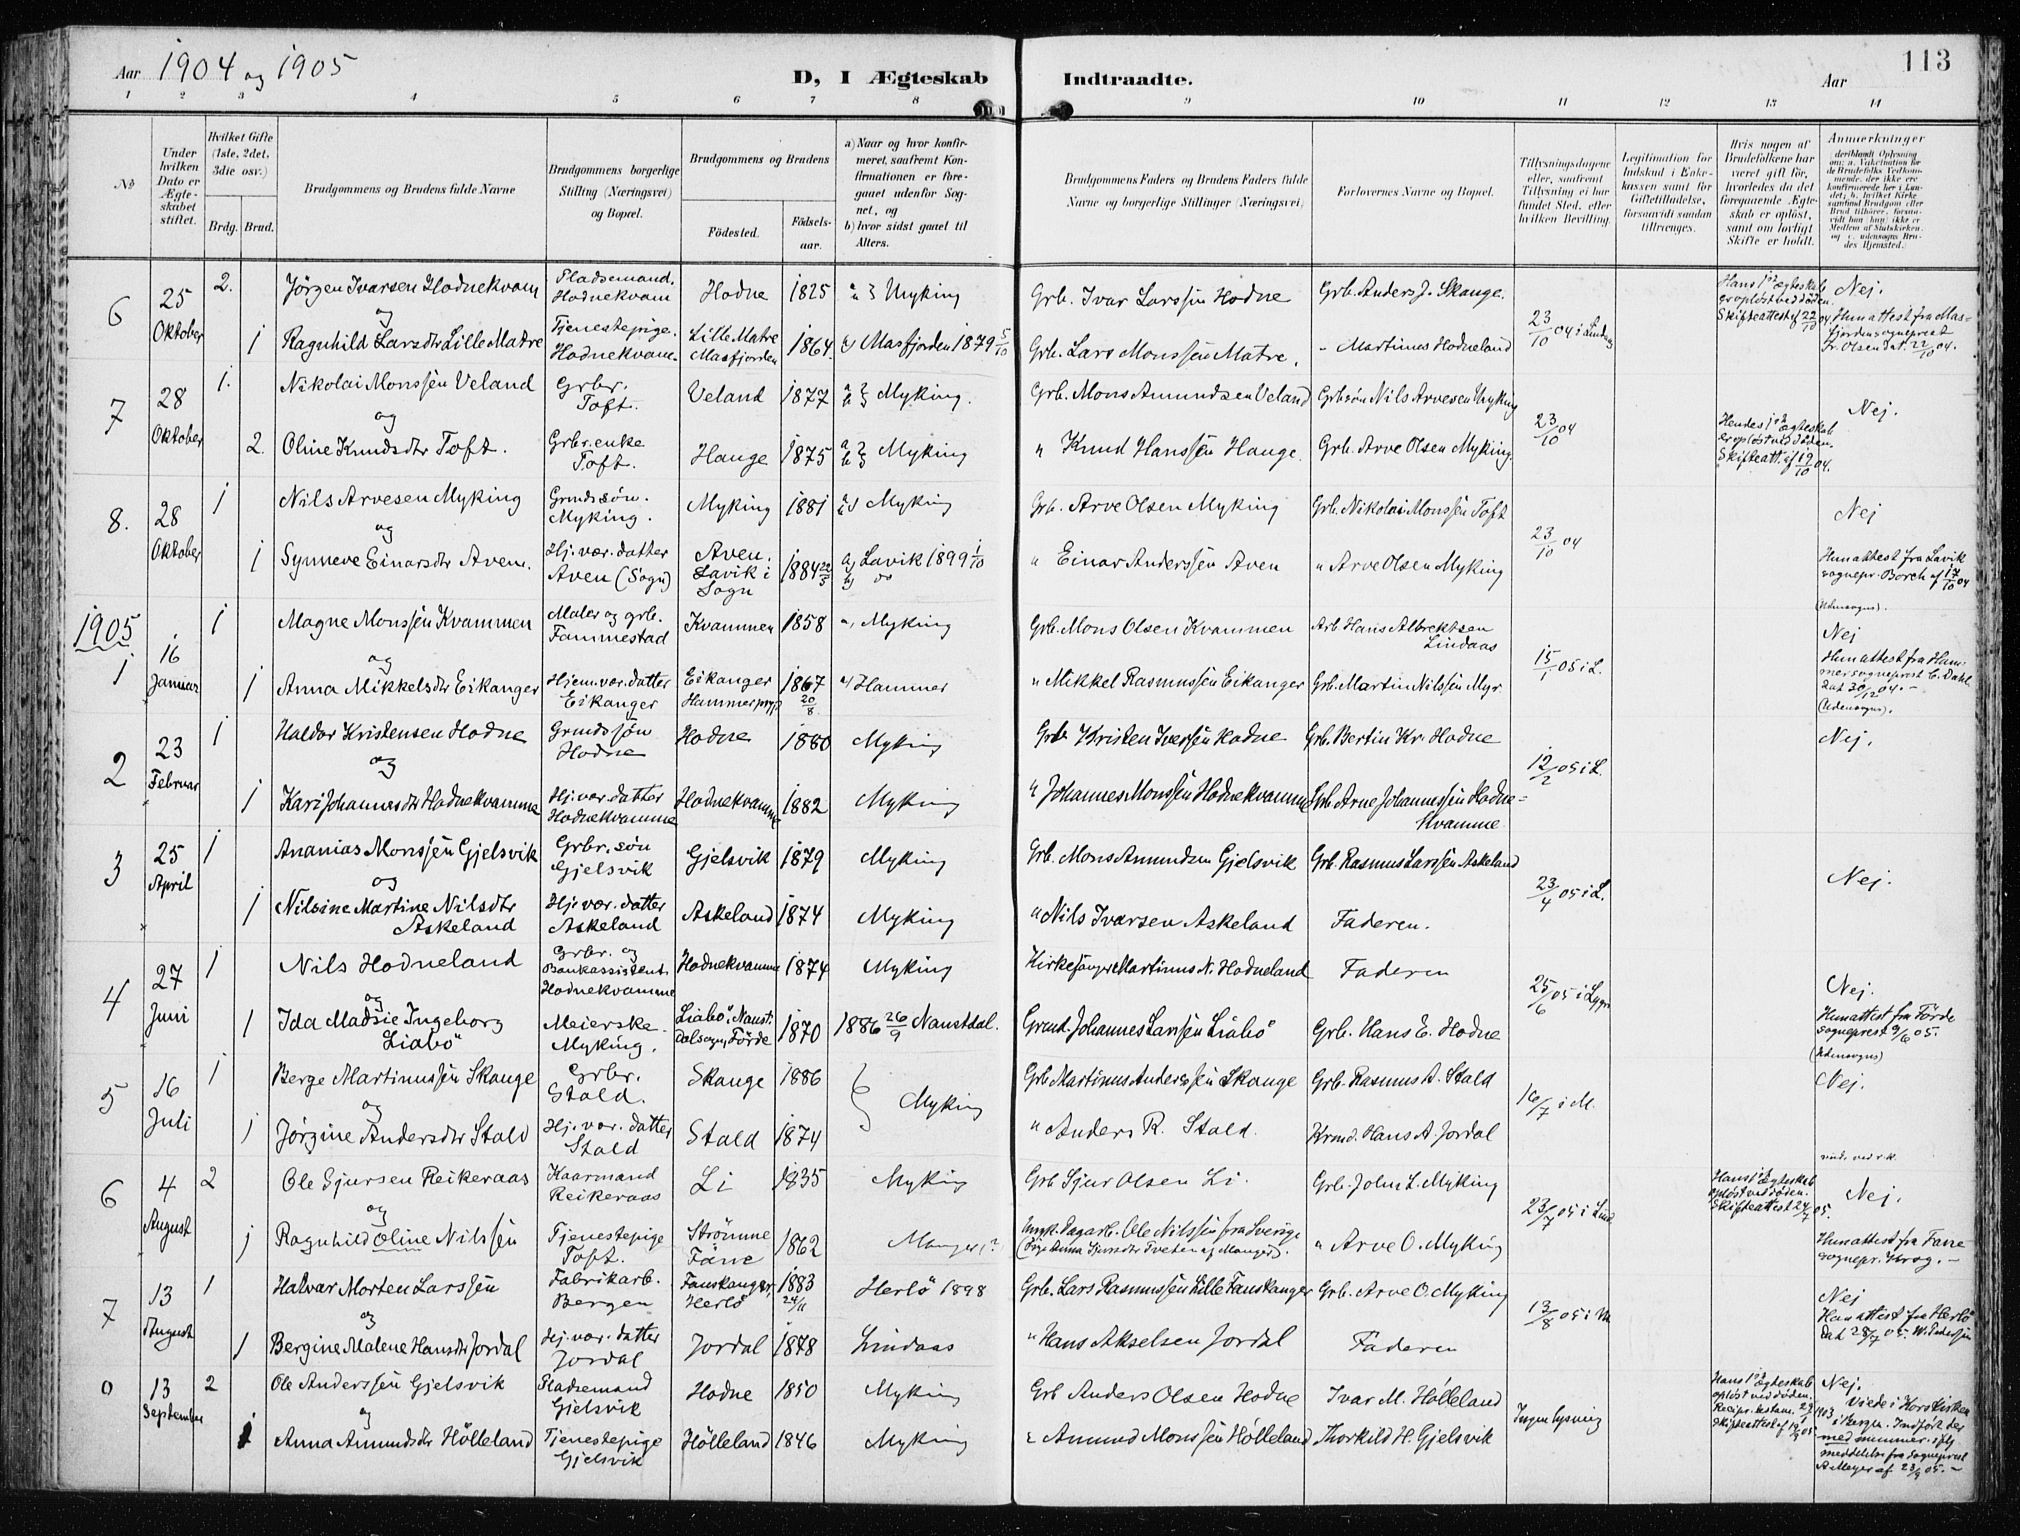 Aar 1904 og 1905
D, I Ægteskab Indtraadte.
Aar
113
1 2 3 4 5 6 7 8 9 10 11 12 13 14
No
Under hvilken Dato er Ægteskabet stiftet.
Hvilket Gifte (1ste, 2det, 3die osv.)
Brdg. Brud.
Brudgommens og Brudens fulde Navne
Brudgommens borgerlige Stilling (Næringsvei) og Bopæl.
Brudgommens og Brudens
Födested.
Födselsaar.
a) Naar og hvor konfirmeret, saafremt Konfirmationen er foregaaet udenfor Sognet, og
b) hvor sidst gaaet til Alters.
Brudgommens Faders og Brudens Faders fulde Navne og borgerlige Stillinger (Næringsvei)
Forlovernes Navne og Bopæl.
Tillysningsdagene eller, saafremt Tillysning ei har fundet Sted, efter hvilken Bevilling
Legitimation for Indskud i Enkekassen samt for Giftetilladelse, forsaavidt saadan tiltrænges.
Hvis nogen af Brudefolkene har været gift för, hvorledes da det foregaaende Ægteskab er oplöst, samt om lovligt Skifte er holdt.
Anmerkninger
6 25 Oktober 2. Jörgen Ivarsen Hodnekvam Pladsemand. Hodnekvam Hodne 1825 Myking Grb. Ivar Larssen Hodne Grb. Anders J. Skauge. 23/10 04 i Lindaas Hans 1ste ægteskab er oplöst ved döden. Skifteattest af 22/10 04. Nej.
og
1 Ragnhild Larsdtr Lille Matre Tjenestepige. Hodnekvam Lille Matre Masfjorden 1864. Masfjorden 1879 5/10 Grb. Lars Monssen Matre. - Martinus Hodneland Hun attest fra Masfjordens sogneprest Fr. Olsen dat. 22/10 04.
7 28 Oktober 1. Nikolai Monssen Veland Grbr. Toft. Veland 1877 Myking. Grb. Mons Amundsen Veland Grbsön Nils Arvesen Myking 23/10 04 Nej.
og
2. Oline Knudsdtr Toft. Grbr.enke Toft. Hauge 1875 Myking " Knud Hanssen Hauge. Grb. Arve Olsen Myking. Hendes 1ste ægteskab er oplöst ved döden. Skifteatt. af 19/10 04.
8. 28 Oktober 1 Nils Arvesen Myking Grmds sön. Myking. Myking 1881 Myking Grb. Arve Olsen Myking Grb. Nikolai Monssen Toft 23/10 04 Nej
og
1 Synneve Einarsdtr Aven. Hj.vær. datter Aven (Sogn) Aven. Lavik i Sogn 1884 22/5 a) Lavik 1899 1/10 " Einar Anderssen Aven " Arve Olsen Myking Hun attest fra Lavik sognepr. Borch af 17/10 04 (Udensogns).
1905
1 16 Januar 1 Magne Monssen Kvammen Maler og grb. Fammestad Kvammen 1858 Myking Grb. Mons Olsen Kvammen Arb. Hans Albrektsen Lindaas 15/1 05 i L. Nej
og
1 Anna Mikkelsdtr Eikanger Hjem.vær. datter Eikanger Eikanger Hammer prgj. 1867 20/8. Hammer " Mikkel Rasmussen Eikanger Grb. Martin Nilssen Myr. Hun attest fra Hammer sogneprest C. Dahl dat 30/12 04. - (Udensogns).
2 23 Februar 1 Haldor Kristensen Hodne Grmds sön Hodne Hodne 1880 Myking Grb. Kristen Iversen Hodne Grb. Bertin Kr. Hodne 12/2 05 i L. Nej.
og
1 Kari Johannesdtr Hodnekvamme Hj.vær. datter Hodnekvamme Hodnekvamme 1882 Myking " Johannes Monssen Hodnekvamme Grb. Arne Johannessen Hodnekvamme.
3 25 April 1 Ananias Monssen Gjelsvik Grbr. sön Gjelsvik Gjelsvik 1879 Myking Grb. Mons Amundsen Gjelsvik Grb. Rasmus Larssen Askeland 23/4 05 i L. Nej.
og
1 Nilsine Martine Nilsdtr Askeland Hj. vær. datter Askeland Askeland 1874 Myking " Nils Ivarsen Askeland Faderen.
4 27 Juni 1 Nils Hodneland Grbr. og Bankassistent Hodnekvamme Hodnekvamme 1874 Myking Kirkesanger Martinus N. Hodneland Faderen 25/6 05 i Lygre Nej.
og
1 Ida Madsie Ingeborg Liabö Meierske. Myking. Liabö i Naustdal sogn, Förde 1870 1886 26/9 Naustdal. Grmd. Johannes Larssen Liabö Grb. Hans E. Hodne Hun attest fra Förde sogneprest 9/6 05. (Udensogns)
5 16 Juli 1 Berge Martinussen Skauge Grbr. Stald. Skauge 1886 Myking Grb. Martinus Anderssen Skauge Grb. Rasmus A. Stald 16/7 i M. Nej.
og
1 Jörgine Andersdtr Stald Hj. vær. datter Stald Stald 1874 " Anders R. Stald. Krmd. Hans A. Jordal
6 4 August 2 Ole Sjursen Reikeraas Kaarmand Reikeraas Li 1835 Myking Grb Sjur Olsen Li. Grb. John L. Myking 23/7 05 i Lind. Hans 1ste ægteskab oplöst ved döden. Skifteattest 24/7 05. Nej.
og
1 Ragnhild Oline Nilssen Tjenestepige Toft. Strömme Fane 1862 Manger, ? Dagarb. Ole Nilssen fra Sverige " Arve O. Myking Hun attest fra Fane sognepr. Krog. -
7 13 August 1 Halvar Morten Larssen Fabrikarb. Bergen Fauskanger, Herlö 1883 24/11 Herlö 1898 Grb. Lars Rasmussen Lille Fauskanger Grb. Arve O. Myking 13/8 05 i M Nej
og
1 Bergine Malene Hansdtr Jordal Hj. vær. datter Jordal Jordal 1878 Lindaas " Hans Akselsen Jordal Faderen Han attest fra Herlö dat 28/7 05. W. Pedersen
13 September 2 Ole Anderssen Gjelsvik Pladsemand Gjelsvik Hodne 1850 Myking Grb Anders Olsen Hodne Ivar M. Hölleland Ingen lysning Hans 1ste ægteskab oplöst ved döden. Nej.
og
1 Anna Amundsdtr Hölleland Tjenestepige Gjelsvik Hölleland 1846 Myking " Amund Monssen Hölleland Thorkild H. Gjelsvik Viede i Korskirken i Bergen. Indfört der med nummer iflg meddelelse fra sogneprest A. Meyer af 23/9 05. -